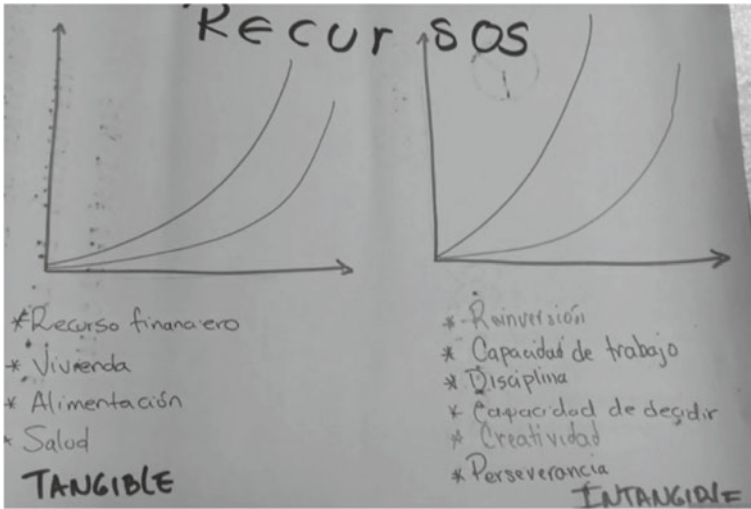 RECURSOS
*Recurso financiero
* Vivienda
* Alimentación
* Salud
TANGIBLE
* Reinversión
* Capacidad de trabajo
* Disciplina
* Capacidad de decidir
* Creatividad
* Perseverancia
INTANGIBLE